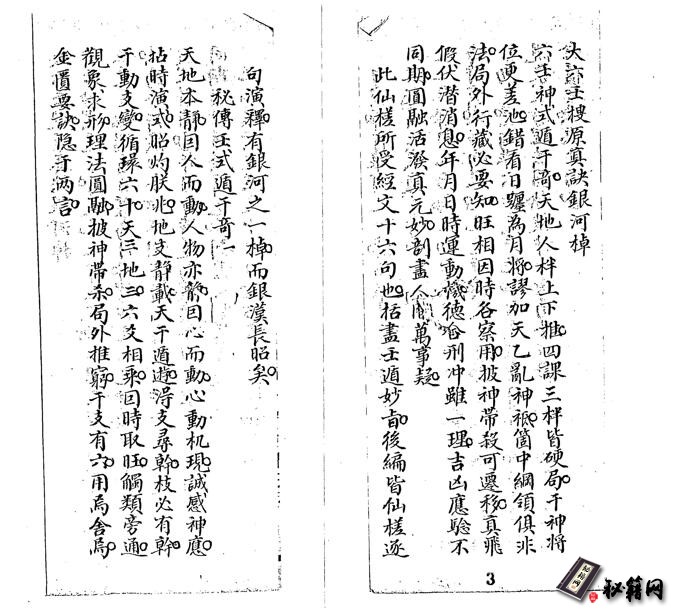 大六壬搜源真訣銀河棹
六壬神式遁干奇天地人柈上下推四課三柈皆硬局干神將
位更差池錯看日躔為月將謬加天乙亂神祇箇中綱領俱非
法局外行藏必要知旺相因時各察用披神帶殺可遷移真飛
假伏潛消息年月日時運動機德合刑冲雖一理吉凶應驗不
同期圓融活潑真元妙剖盡人間萬事疑
此仙槎所受經文十六句也括盡壬遁妙旨後編皆仙槎逐
句演釋有銀河之一棹而銀漢長昭矣
秘傳壬式遁干奇一
天地本靜因人而動人物亦靜因心而動心動机現誠感神應
拈時演式昭灼朕兆地支靜載天干遁遊得支尋幹枝必有幹
干動支變循環六十天三地三六爻相乘因時取旺觸類旁通
觀象求形理法圓融披神帶杀局外推窮干支有六用焉舍焉
金匱要訣隐于两言
3
秘籍网
秘籍网